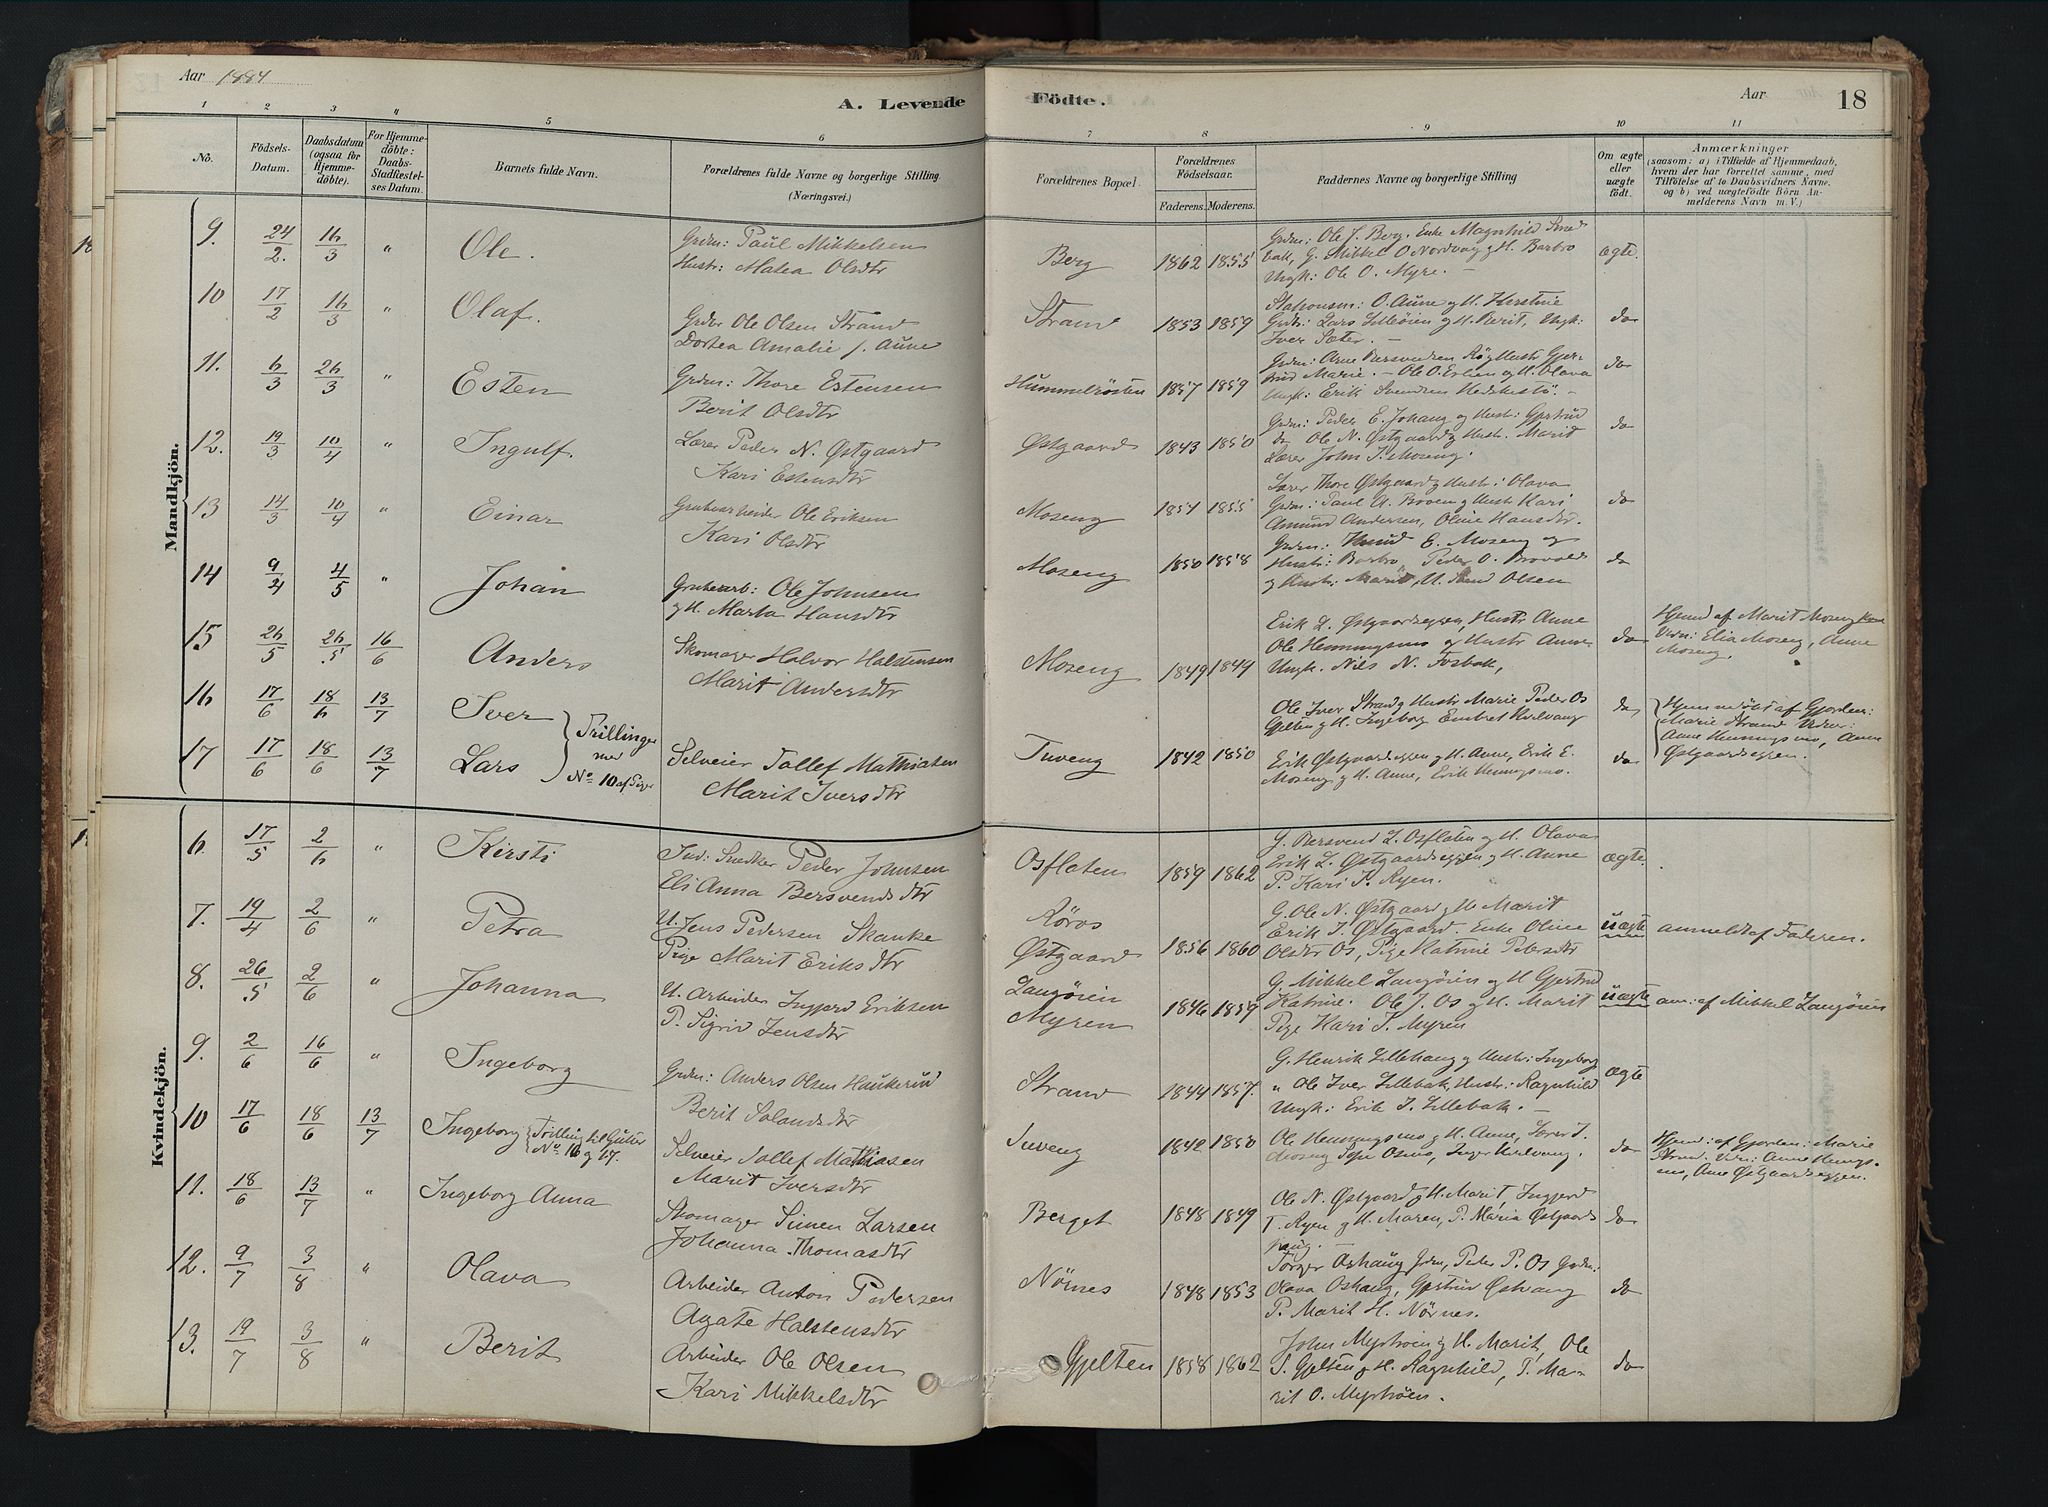 Aar 1884
A. Levende
Födte.
Aar
18
1 2 3 4 5 6 7 8 9 10 11
No.
Födsels-Datum.
Daabsdatum (ogsaa for Hjemme-döbte).
For Hjemme-döbte: Daabs-Stadfæstel-ses Datum.
Barnets fulde Navn.
Forældrenes fulde Navne og borgerlige Stilling (Næringsvei.)
Forældrenes Bopæl.
Forældrenes Födselsaar.
Faderens. Moderens.
Faddernes Navne og borgerlige Stilling
Om ægte eller uægte födt.
Anmærkninger
(saasom: a) i Tilfælde af Hjemmedaab,
hvem der har forrettet samme, med
Tilföielse af to Daabsvidners Navne,
og b) ved uægtefödte Börn An-
melderens Navn m. V.)
Mandkjön.
9. 24/2. 16/3 " Ole. Grdm: Paul Mikkelsen
Hustr: Malea Olsdtr
Berg 1862 1855
Grdm: Ole J. Berg. Enke Magnhild
G. Mikkel O Nordvag og H. Barbro
Ungk: Ole O. Myre. –
Ægte.
10 17/2 16/3 " Olaf. Grdbr Ole Olsen Strand
Dortea Amalie f. Aune
Strand 1853 1859
O. Aune og H. Kerstine
Grdbr: Lars Lilleöien og H. Berit, Ungk:
Iver Sæter. –
do
11. 6/3 26/3 " Esten Grdm: Thore Estensen
Berit Olsdtr
Hummelrösten 1857 1859
Grdm: Arne Bersvendsen Røg Hustr Gjer-
trud Marie. – Ole O. Erlien og H. Olava
Ungk: Erik Svendsen
do
12. 19/3 10/4 " Ingulf. Lærer Peder N. Østgaard
Kari Estensdtr
Østgaard 1843 1850
Grdm: Peder E. Johaug og Hustr: Gjertrud
do Ole N. Østgaard og Hustr. Marit
Lærer John P. Moseng.
do
13 14/3 10/4 " Einar Grubearbeider Ole Eriksen
Kari Olsdtr
Moseng 1854 1855
Lærer Thore Østgaard og Hustr: Olava
Grdm: Paul A. Broen og Hustr Kari
Amund Andersen, Oline Hansdtr.
do
14 9/4 4/5 " Johan Grubearb: Ole Johnsen
og H. Marta Hansdtr
Moseng 1850 1858
Grdm: Knud E. Moseng og
Hustr: Barbro Peder O. Brovold
og Hustr: Marit, U. Olsen
do
15 26/5 26/5 16/6 Anders Skomager Halvor Halstensen
Marit Andersdtr
Moseng 1849 1849
Erik L. Østgaardseggen, Hustr Anne
Ole Henningsmo og Hustr Anne
Ungk. Nils N. Fosbak,
do
Hjemd af Marit Moseng
Vidn: Elia Moseng, Anne
Moseng.
16 17/6 18/6 13/7 Iver
17 17/6 18/6 13/7 Lars
Trillinger
med
No 10 af Piger
Selveier Tollef Mathiasen
Marit Iversdtr
Tuveng 1842 1850
Ole Iver Strand og Hustr Marie, Peder Os
Gjelten og H. Ingeborg Embret Kvilvang
do
Erik Østgaardseggen og H. Anne, Erik E.
Moseng og H. Anne, Erik Henningsmo.
do
Hjemmedöbt af Gjordem:
Marie Strand Vidner:
Anne Henningsmo, Anne
Østgaardseggen.
Kvindekjön.
6. 17/5 2/6 " Kirsti Ind: Snedker Peder Johnsen
Eli Anna Bersvendsdtr
Osflaten 1859 1862
G. Bersvend L. Osflaten og H. Olava
Erik L. Østgaardseggen og H. Anne
P. Kari P. Ryen.
ægte.
7. 19/4 2/6 " Petra U. Jens Pedersen Skanke
Pige Marit Eriksdtr
Röros
Østgaard 1856 1860
G. Ole N. Østgaard og H. Marit
Erik J. Østgaard. Enke Oline
Olsdtr Os, Pige Katrine Pedersdtr
uægte
anmeldt af Faderen.
8. 26/5 2/6 " Johanna U. Arbeider Ingjerd Eriksen
P. Sigrid Jensdtr
Langöien
Myren 1846 1859
G. Mikkel Langöien og H Gjertrud
Katrine. Ole J. Os og H. Marit
Pige Kari J. Myren
uægte
anm: af Mikkel Langöien
9. 2/6 16/6 " Ingeborg Grdm: Anders Olsen Haukerud
Berit Salamdsdtr
Strand 1844 1857.
G. Henrik Lillehaug og Hustr: Ingeborg
" Ole Iver Lillebak, Hustr: Ragnhild
Ungk: Erik J. Lillebak. –
ægte
10 17/6 18/6 13/7 Ingeborg Trilling til Gutter
No 16 og 17.
Selveier Tollef Mathiasen
Marit Iversdtr
Tuveng 1842 1850
Ole Henningsmo og H. Anne, Lærer J.
Moseng Osmo, Inger Kvilvang.
do
Hjemd: af Gjordem: Marie
Strand. Vidn: Anne Hennings-
mo, Anne Østgaardseggen.
11. 18/6 13/7 " Ingeborg Anna Skomager Simen Larsen
Johanna Thomasdtr
Berget 1848 1849
Ole N. Østgaard og H. Marit, Ingjerd
T. Ryen og H. Maren, P. Maria Østgaards
haug. –
do
12. 9/7 3/8 " Olava Arbeider Anton Pedersen
Agate Halstensdtr
Nörnes 1848 1853
Törger Oshaug Grdm, Peder P. Os Grdm:
Olava Oshaug, Gjertrud Østvang
P. Marit H. Nörnes.
do
13. 19/7 3/8 " Berit Arbeider Ole Olsen
Kari Mikkelsdtr
Gjelten 1858 1862
John Myströen og H. Marit, Ole
S. Gjelten og H. Ragnhild, P. Ma-
rit O. Myströen.
do